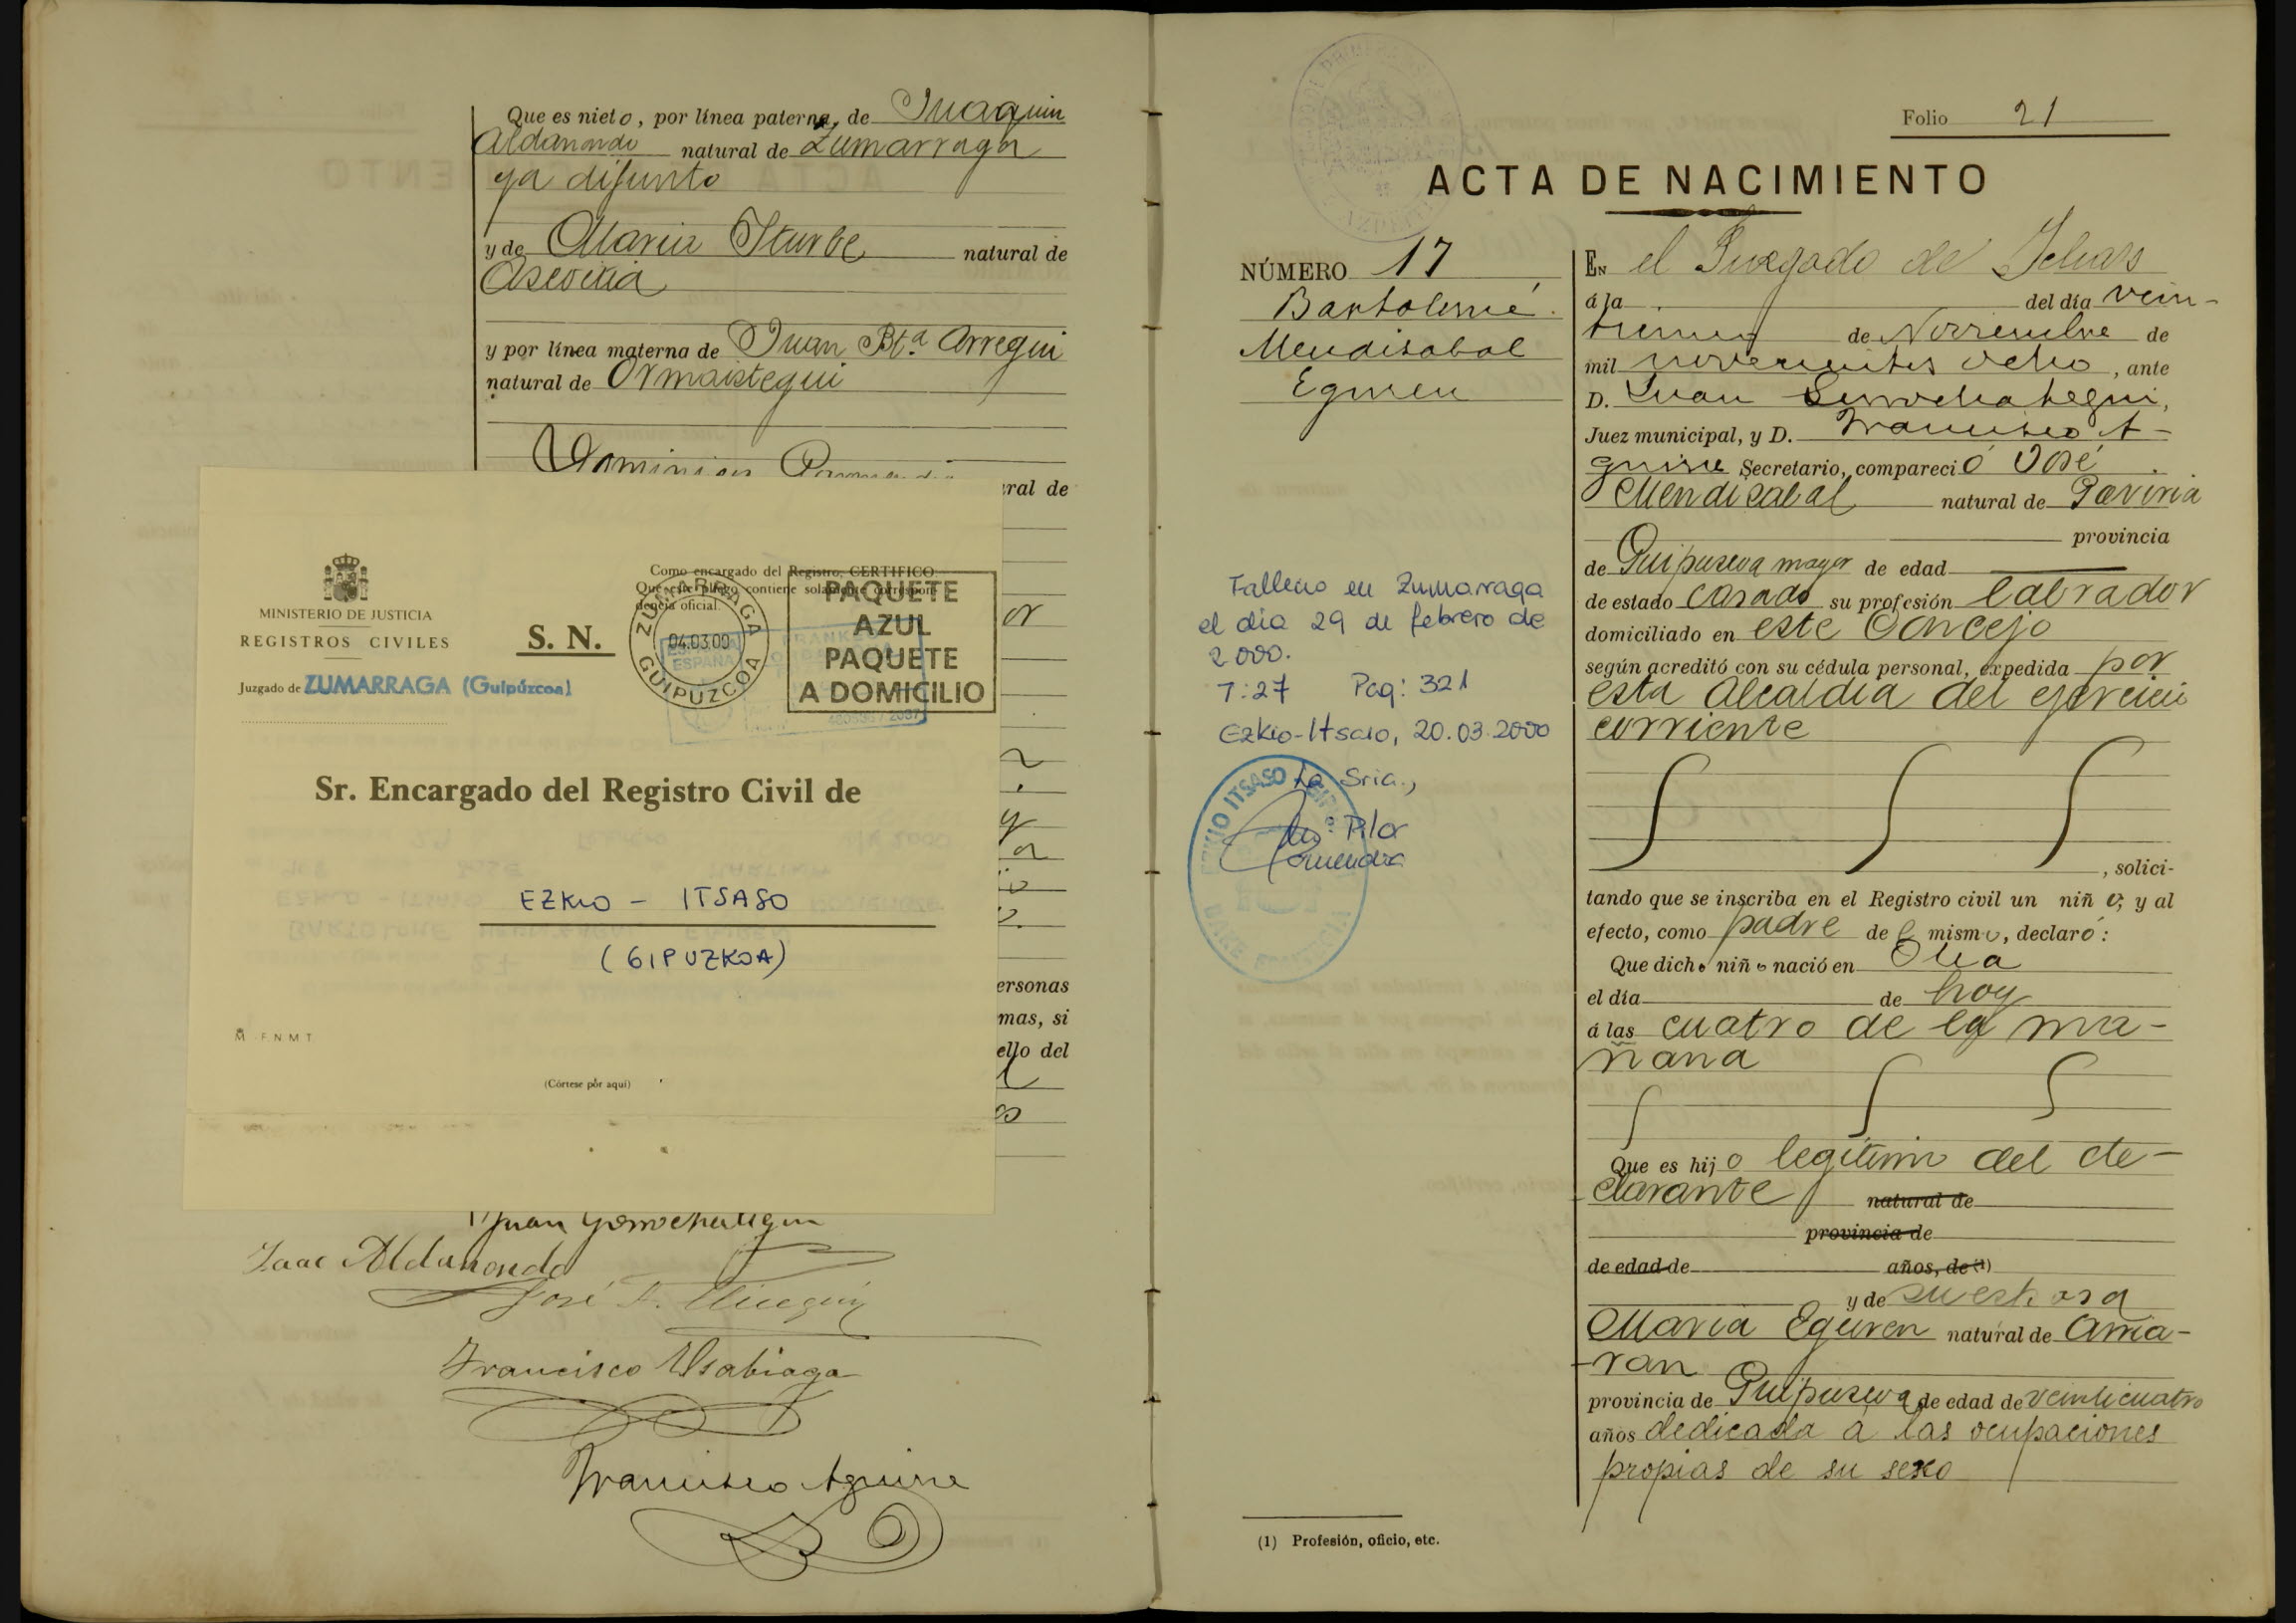 Que es nieto, por línea paterna, de Juaquin
Aldanondo natural de Zumarraga
ya difunto
y de Maria Iturbe natural de
Ascoitia
y por línea materna de Juan Bta. Arregui
natural de Ormaistegui
Dominica
ral de
or
y
a
ersonas
mas, si
ello del
MINISTERIO DE JUSTICIA
REGISTROS CIVILES
Juzgado de ZUMARRAGA (Guipúzcoa)
S. N.
Como encargado del Registro, CERTIFICO:
Que este pliego contiene solamente correspon-
dencia oficial.
ZUMARRAGA
04.03.00
GUIPUZCOA
ESPAÑA
PAQUETE
AZUL
PAQUETE
A DOMICILIO
Sr. Encargado del Registro Civil de
EZKIO - ITSASO
(GIPUZKOA)
F.N.M.T.
(Córtese por aquí)
Juan Gorrochategui
Isaac Aldanondo
José
Francisco Usabiaga
Francisco Aguirre
Folio 21
ACTA DE NACIMIENTO
NÚMERO 17
Bartolomé
Mendisabal
Eguren
Falleció en Zumarraga
el día 29 de febrero de
2000.
T: 27 Pag: 321
Ezkio-Itsaso, 20.03.2000
La Sria.,
Mª Pilar
EZKIO ITSASO
En el Juzgado de Ichaso
á la del día vein-
tiuno de Noviembre de
mil novecientos ocho, ante
D. Juan Gorrochategui,
Juez municipal, y D. Francisco A-
guirre Secretario, compareció José
Mendizabal natural de Gaviria
provincia
de Guipuscoa mayor de edad
de estado casado su profesión labrador
domiciliado en este Concejo
según acreditó con su cédula personal, expedida por
esta Alcaldia del ejercicio
corriente
, solici-
tando que se inscriba en el Registro civil un niño, y al
efecto, como padre del mismo, declaró:
Que dicho niño nació en
el día de hoy
á las cuatro de la ma-
ñana
Que es hijo legitimo del de-
clarante natural de
provincia de
de edad de años, de (1)
y de su esposa
Maria Eguren natural de
provincia de Guipuscoa de edad de veinticuatro
años dedicada á las ocupaciones
propias de su sexo
(1) Profesión, oficio, etc.